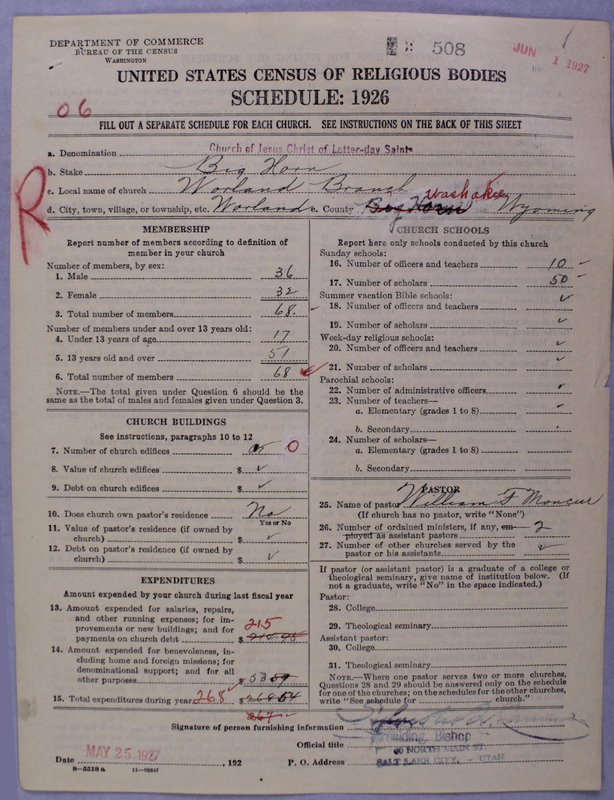 DEPARTMENT OF COMMERCE
BUREAU OF THE CENSUS
WASHINGTON
508
JUN 1 1927
UNITED STATES CENSUS OF RELIGIOUS BODIES
SCHEDULE: 1926
06
FILL OUT A SEPARATE SCHEDULE FOR EACH CHURCH. SEE INSTRUCTIONS ON THE BACK OF THIS SHEET
R
a. Denomination Church of Jesus Christ of Latter-day Saints
b. Stake Big Horn
c. Local name of church Worland Branch
d. City, town, village, or township, etc. Worland e. County Big Horn Washakie Wyoming
MEMBERSHIP
Report number of members according to definition of member in your church
Number of members, by sex:
1. Male 36
2. Female 32
3. Total number of members 68
Number of members under and over 13 years old:
4. Under 13 years of age 17
5. 13 years old and over 51
6. Total number of members 68
NOTE.—The total given under Question 6 should be the same as the total of males and females given under Question 3.
CHURCH BUILDINGS
See instructions, paragraphs 10 to 12
7. Number of church edifices 0
8. Value of church edifices $ ✓
9. Debt on church edifices $ ✓
10. Does church own pastor's residence No
Yes or No
11. Value of pastor's residence (if owned by church) $ ✓
12. Debt on pastor's residence (if owned by church) $ ✓
EXPENDITURES
Amount expended by your church during last fiscal year
13. Amount expended for salaries, repairs, and other running expenses; for improvements or new buildings; and for payments on church debt $ 215
14. Amount expended for benevolences, including home and foreign missions; for denominational support; and for all other purposes $ 53
15. Total expenditures during year 268 $
267
CHURCH SCHOOLS
Report here only schools conducted by this church
Sunday schools:
16. Number of officers and teachers 10
17. Number of scholars 50
Summer vacation Bible schools:
18. Number of officers and teachers ✓
19. Number of scholars ✓
Week-day religious schools:
20. Number of officers and teachers ✓
21. Number of scholars ✓
Parochial schools:
22. Number of administrative officers ✓
23. Number of teachers—
a. Elementary (grades 1 to 8)
b. Secondary
24. Number of scholars—
a. Elementary (grades 1 to 8)
b. Secondary
PASTOR
25. Name of pastor William F Moncur
(If church has no pastor, write "None")
26. Number of ordained ministers, if any, employed as assistant pastors 2
27. Number of other churches served by the pastor or his assistants ✓
If pastor (or assistant pastor) is a graduate of a college or theological seminary, give name of institution below. (If not a graduate, write "No" in the space indicated.)
Pastor:
28. College
29. Theological seminary
Assistant pastor:
30. College
31. Theological seminary
NOTE.—Where one pastor serves two or more churches, Questions 28 and 29 should be answered only on the schedule for one of the churches; on the schedules for the other churches, write "See schedule for church."
Signature of person furnishing information
Official title Presiding Bishop
Date MAY 25 1927, 192 P. O. Address 40 NORTH MAIN ST. SALT LAKE CITY, - UTAH
8—5518 a